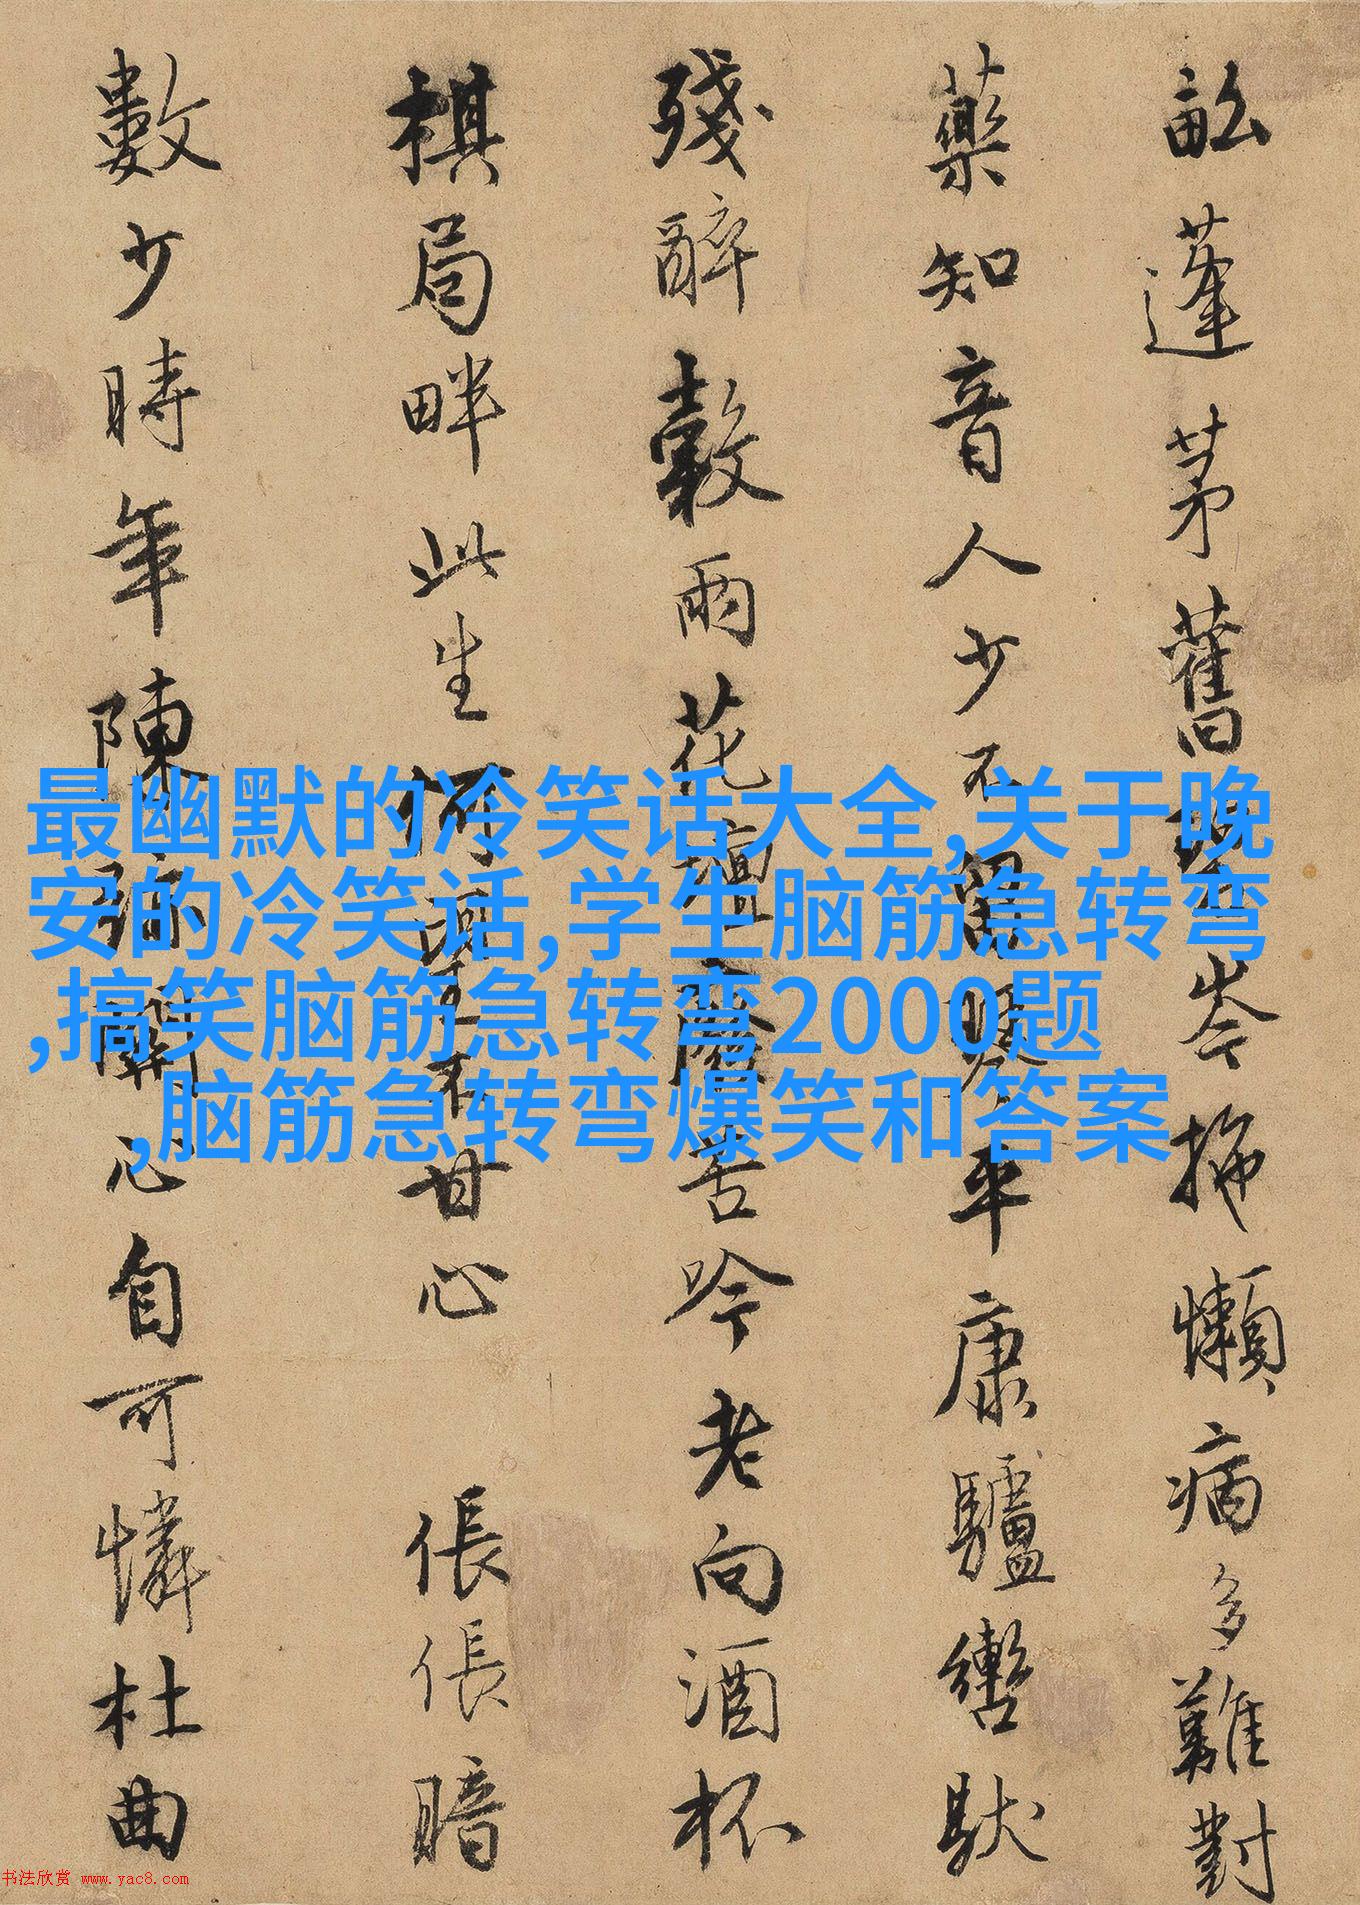 畝蓬茅舊岑拖懶病多難對
藥知音人少不留平康驢轡馱
殘醉穀雨花壇苦吟老向酒杯
棋局畔此生何不甘心 倀倀暗
數少時年陳關心自可憐杜曲
最幽默的冷笑话大全,关于晚
安的冷笑话,学生脑筋急转弯
,搞笑脑筋急转弯2000题
,脑筋急转弯爆笑和答案
书法欣赏 www.yac8.com